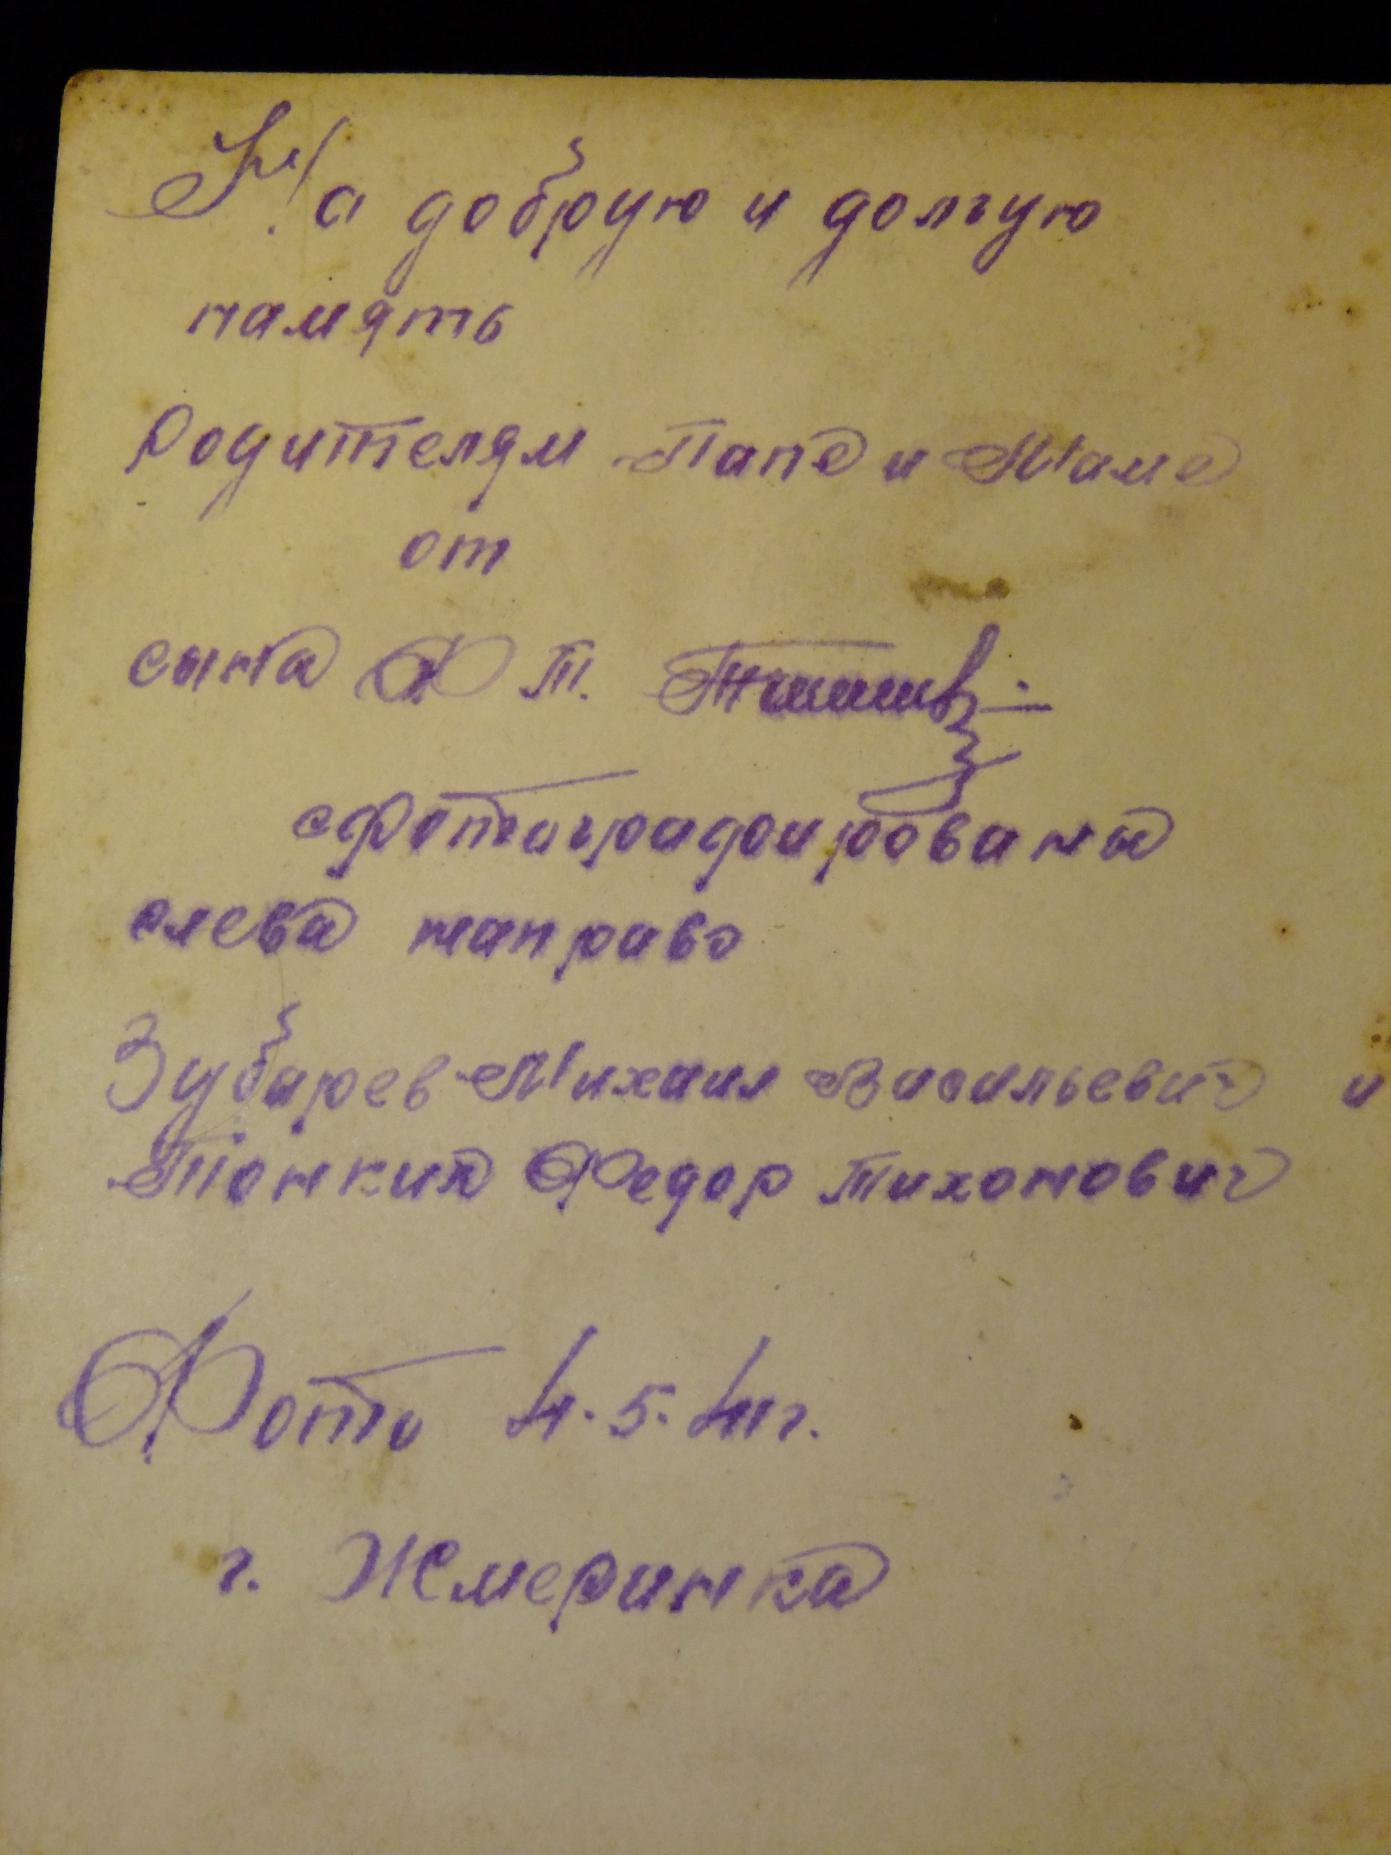 На добрую и долгую
память
Родителям Папе и Маме
от
сына Ф Т.
сфотографированы
слева направо
Зубарев Михаил Васильевич и
Тонкий Федор Тихонович
Фото 4.5.41г.
г. Жмеринка